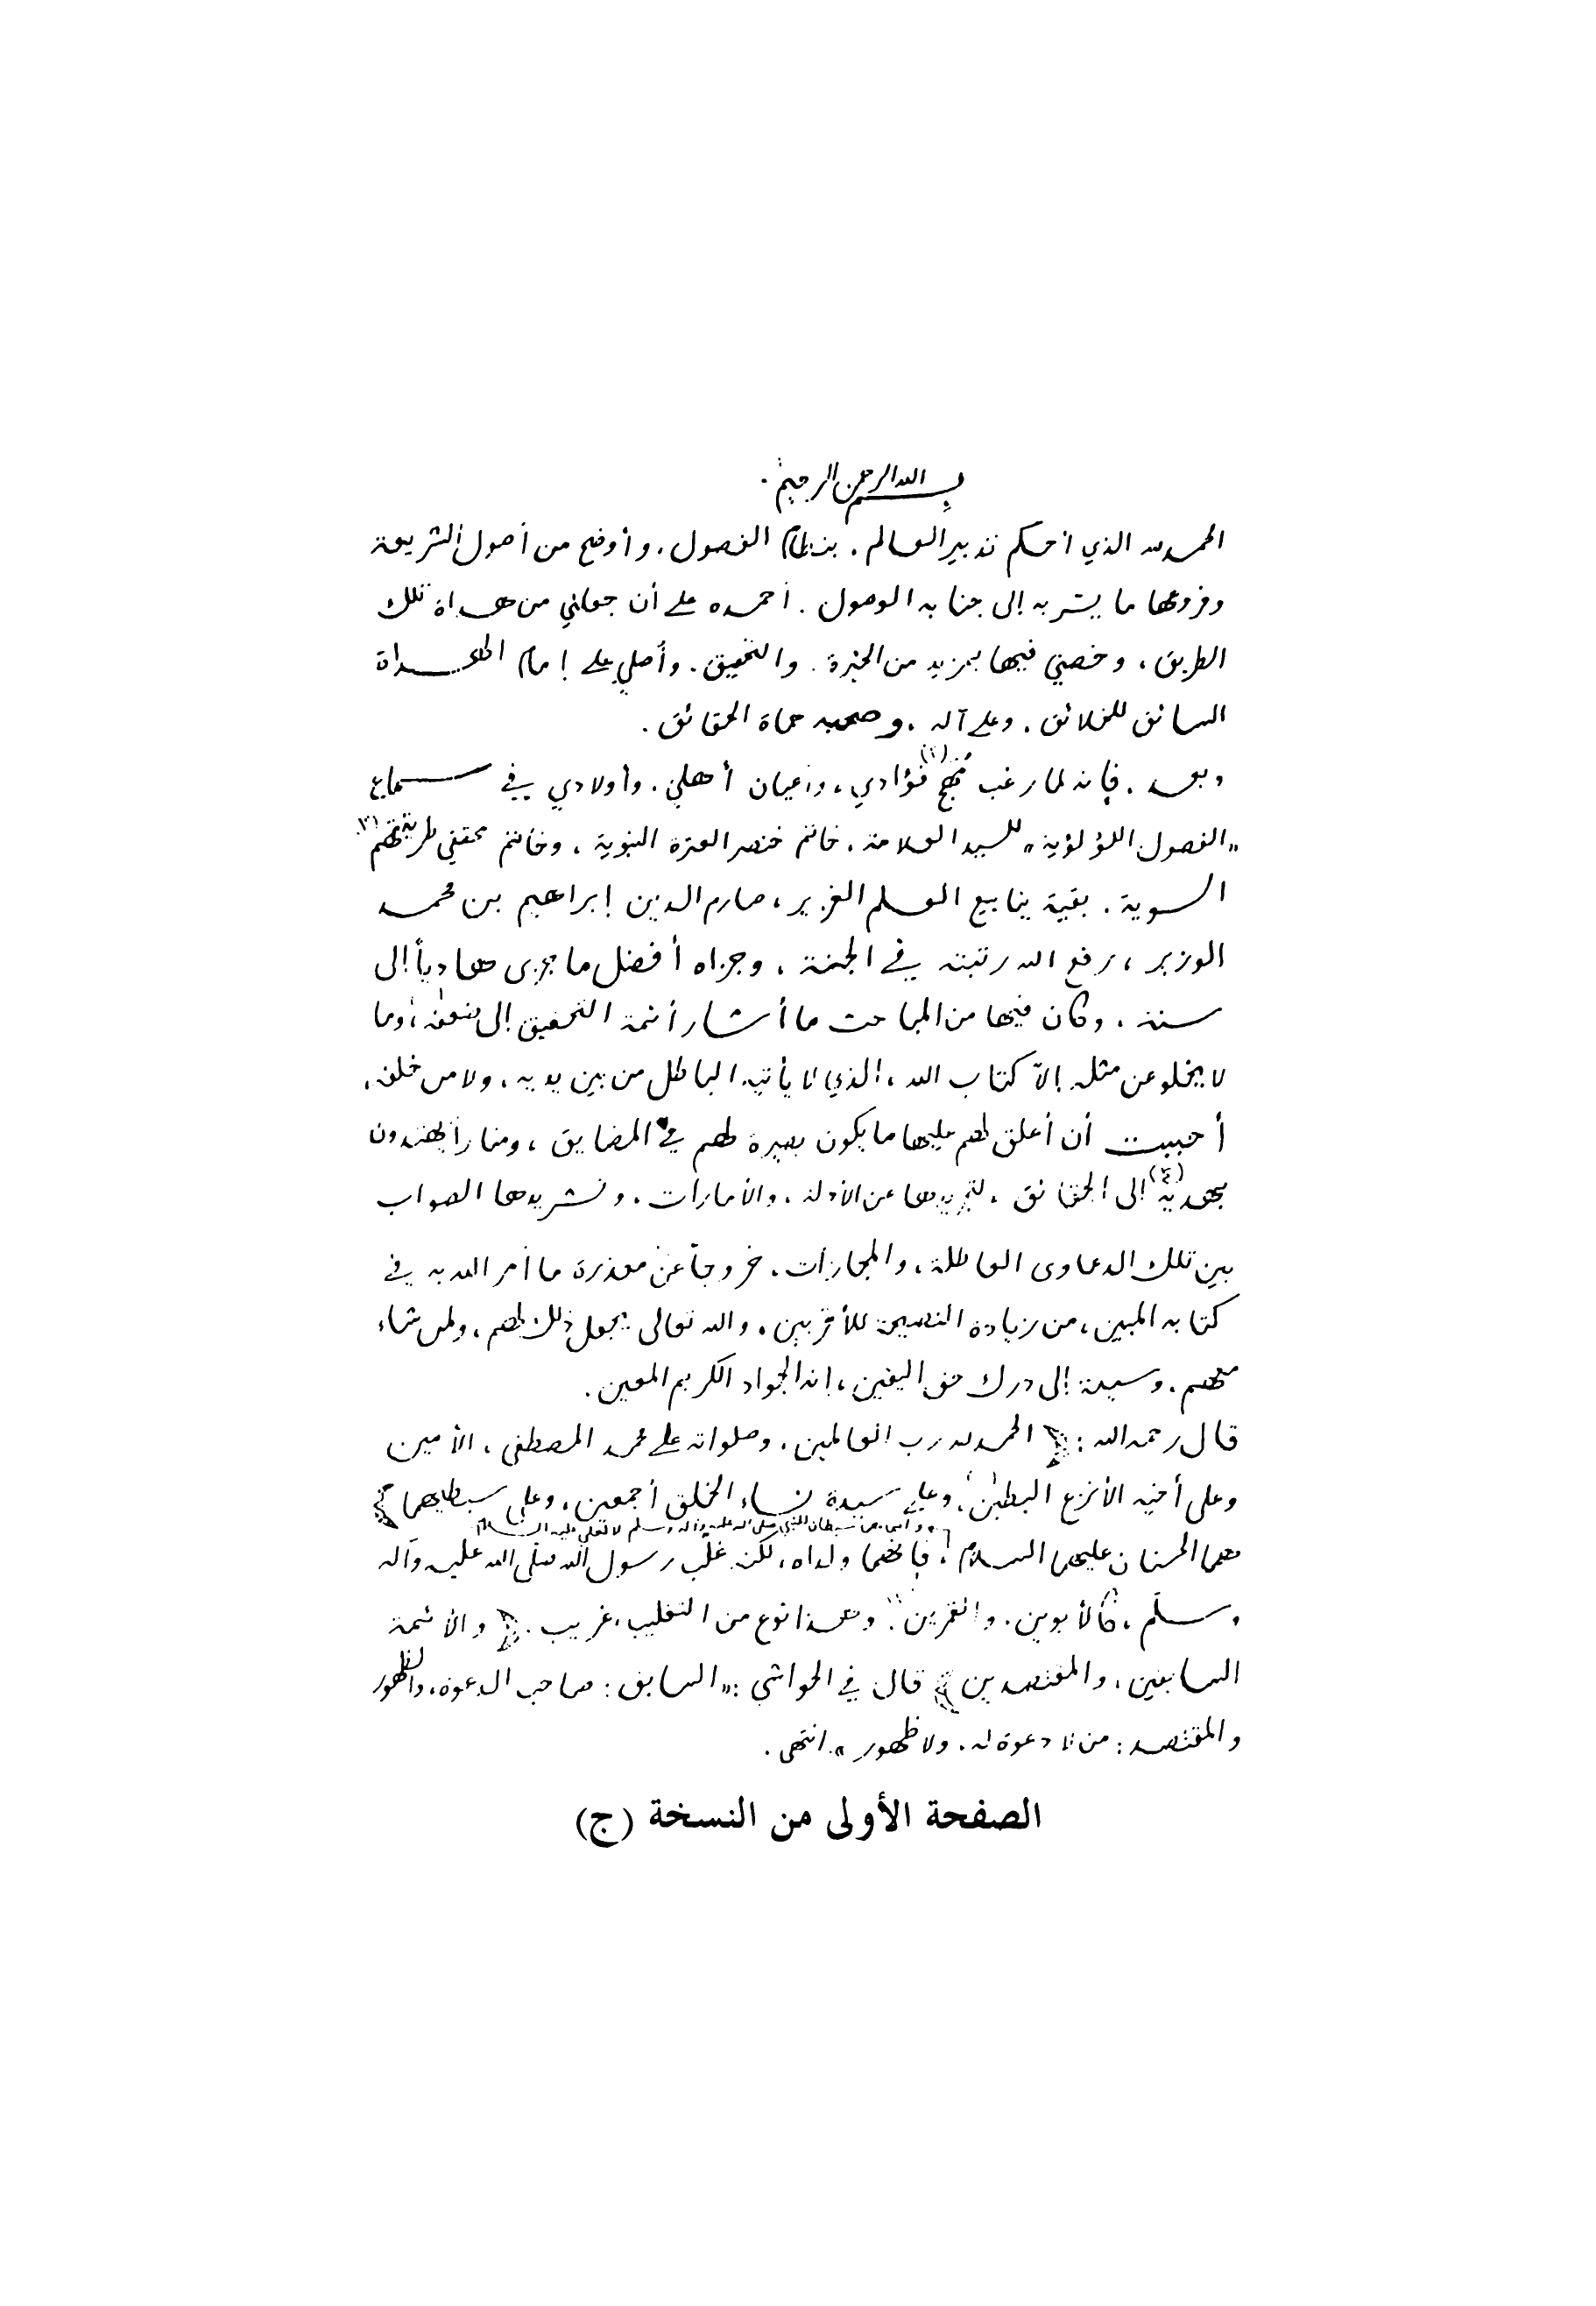 بسم الله الرحمن الرحيم.
الحمد لله الذي أحكم تدبير العالم. بنظام الفصول. وأوضح من أصول الشريعة
وفروعها ما يسّر به إلى جنابه الوصول. أحمده على أن جعلني من هداة تلك
الطريق، وخصني فيها بمزيد من الخبرة. والتحقيق. وأصلي على إمام الهداة
السائق للخلائق. وعلى آله. وصحبه حماة الحقائق.
وبعد. فإنه لما رغب مُهَج (١) فؤادي، وأعيان أهلي. وأولادي في سماع
"الفصول اللؤلؤية" للسيد العلامة. خاتم خنصر العترة النبوية، وخاتم محققي طريقتهم (٢)
السوية. بقية ينابيع العلم الغزير، صارم الدين إبراهيم بن محمد
الوزير، رفع الله رتبته في الجنة، وجزاه أفضل ما جزى هادياً إلى
سنة. وكان فيها من المباحث ما أشار أئمة التحقيق إلى ضعفه، وما
لا يخلو عن مثله إلاّ كتاب الله، الذي لا يأتيه الباطل من بين يديه، ولا من خلفه.
أحببت أن أعلق لهم عليها ما يكون بصيرة لهم في المضايق، ومناراً يهتدون
بهديه (٣) إلى الحقائق. لتجريدها عن الأدلة. والأمارات. وتشريدها الصواب
بين تلك الدعاوى العاطلة، والمجازات. خروجاً عن معذرة ما أمر الله به في
كتابه المبين، من زيادة النصيحة للأقربين. والله تعالى يجعل ذلك لهم، ولمن شاء
منهم. وسيلة إلى درك حق اليقين، إنه الجواد الكريم المعين.
قال رحمه الله: ﴿ الحمد لله رب العالمين. وصلواته على محمد المصطفى، الأمين
وعلى أخيه الأنزع البطين، وعلى سيدة نساء الخلق أجمعين، وعلى سبطيهما ﴾
سبطان للنبي صلى الله عليه وآله وسلم لا لعلي عليه السلام
هما الحسنان عليهما السلام، فإنهما ولداه، لكن غلّب رسول الله صلى الله عليه وآله
وسلّم، كالأبوين. والقمرين. وهذا نوع من التغليب، غريب. ﴿ والأئمة
السابقين، والمقتصدين ﴾ قال في الحواشي: "السابق: صاحب الدعوة، والظهور
والمقتصد: من لا دعوة له. ولا ظهور". انتهى.
الصفحة الأولى من النسخة (ج)